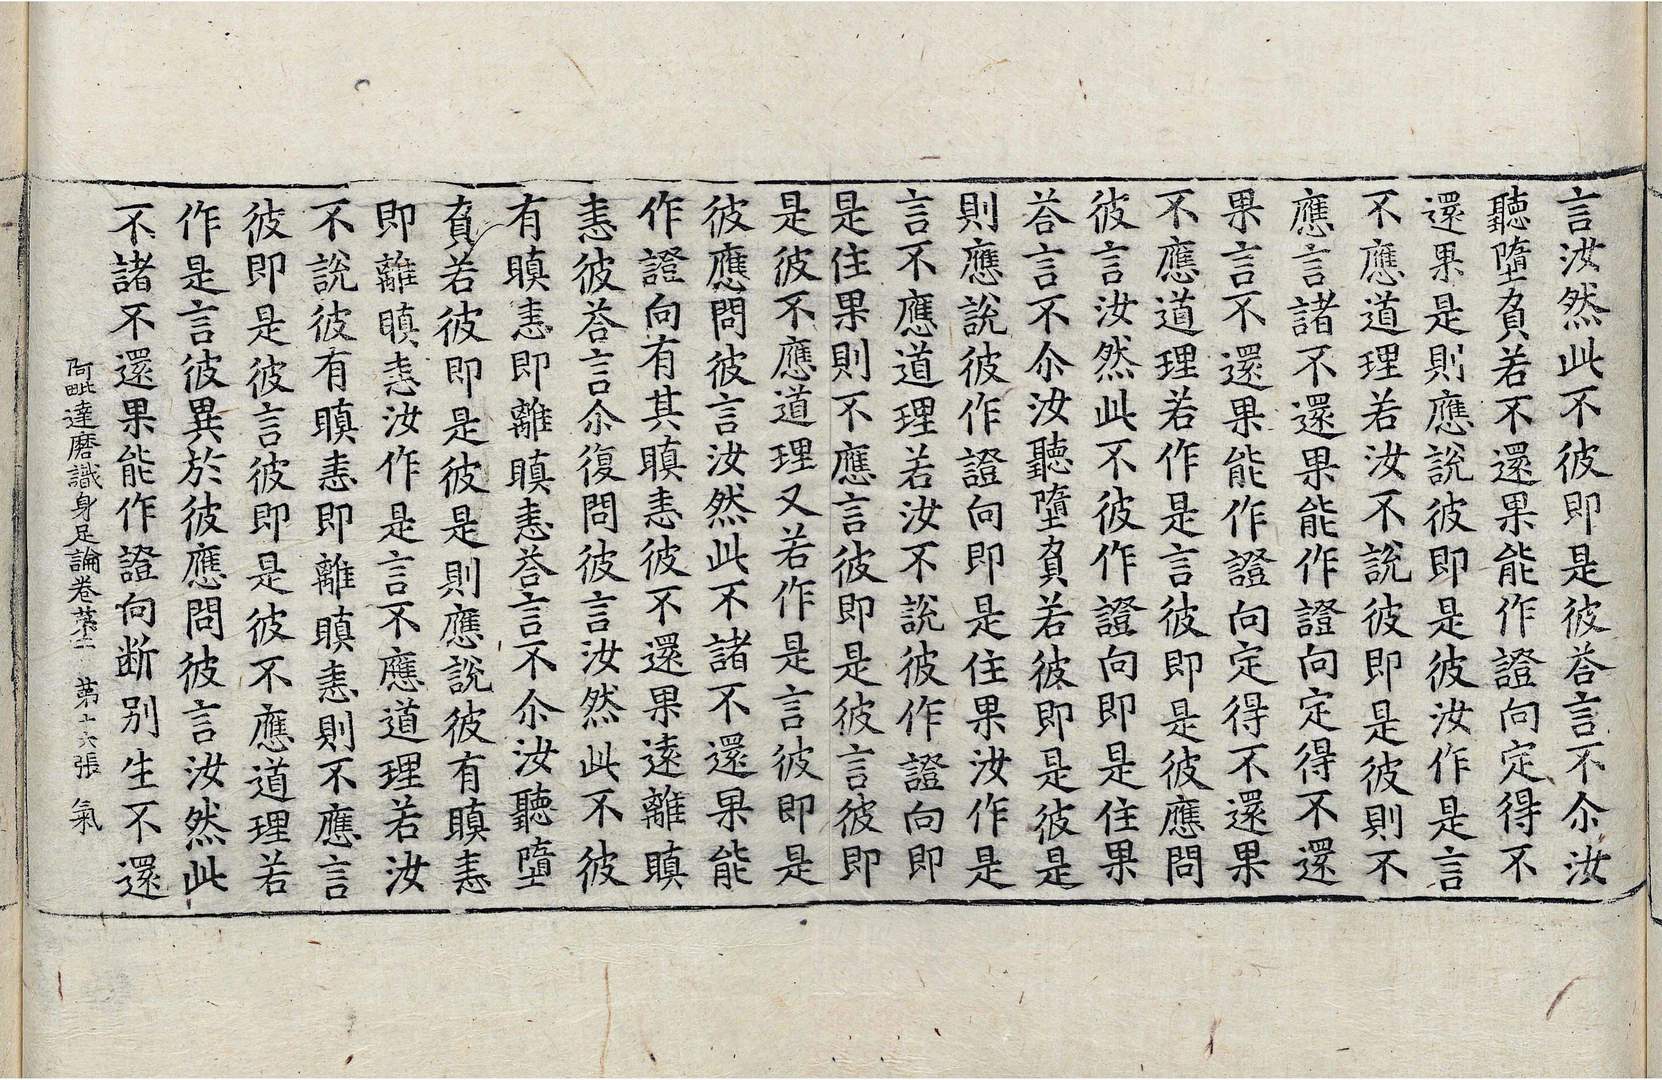 言汝然此不彼即是彼荅言不尒汝
聽墮負若不還果能作證向定得不
還果是則應說彼即是彼汝作是言
不應道理若汝不說彼即是彼則不
應言諸不還果能作證向定得不還
果言不還果能作證向定得不還果
不應道理若作是言彼即是彼應問
彼言汝然此不彼作證向即是住果
荅言不尒汝聽墮負若彼即是彼是
則應說彼作證向即是住果汝作是
言不應道理若汝不說彼作證向即
是住果則不應言彼即是彼言彼即
是彼不應道理又若作是言彼即是
彼應問彼言汝然此不諸不還果能
作證向有其瞋恚彼不還果遠離瞋
恚彼荅言尒復問彼言汝然此不彼
有瞋恚即離瞋恚荅言不尒汝聽墮
負若彼即是彼是則應說彼有瞋恚
即離瞋恚汝作是言不應道理若汝
不說彼有瞋恚即離瞋恚則不應言
彼即是彼言彼即是彼不應道理若
作是言彼異於彼應問彼言汝然此
不諸不還果能作證向断別生不還
阿毗達磨識身足論卷苐 苐十六張 氣